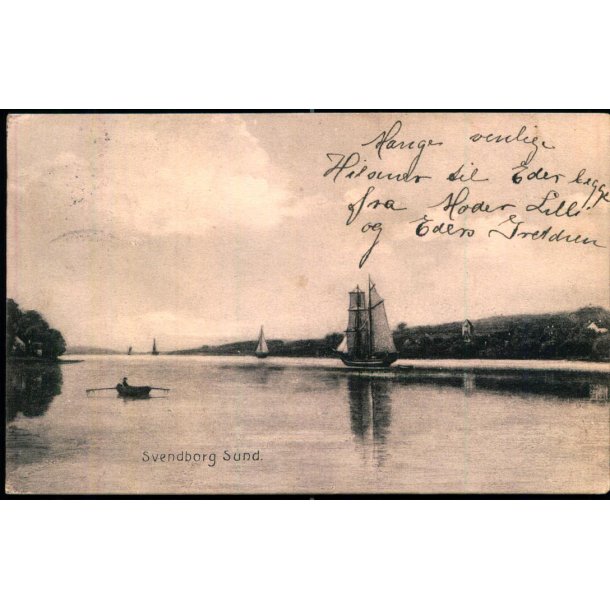 Mange venlige
Hilsner til Eder begge
fra Moder Lilli
og Eders Gretchen
Svendborg Sund.